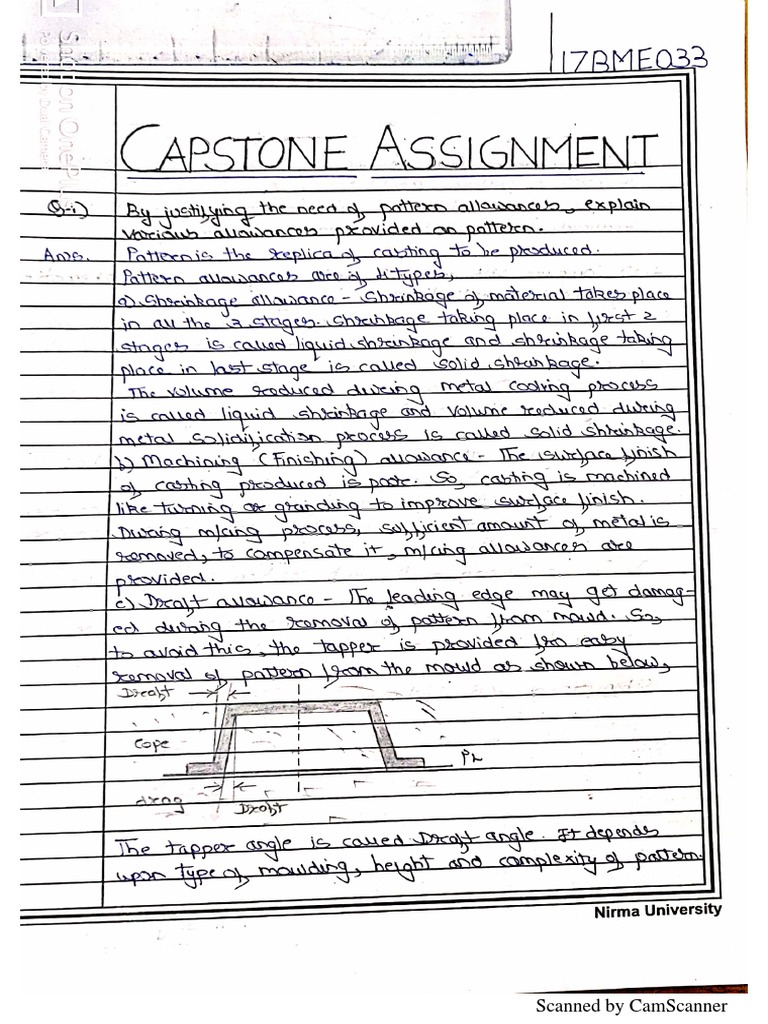 17BME033
CAPSTONE ASSIGNMENT
Q-1) By justifying the need of pattern allowances, explain
various allowances provided on pattern.
Ans. Pattern is the replica of casting to be produced.
Pattern allowances are of 4 types,
a) Shrinkage allowance - Shrinkage of material takes place
in all the 3 stages. Shrinkage taking place in first 2
stages is called liquid shrinkage and shrinkage taking
place in last stage is called solid shrinkage.
The volume reduced during metal cooling process
is called liquid shrinkage and volume reduced during
metal solidification process is called solid shrinkage.
b) Machining (Finishing) allowance - The surface finish
of casting produced is poor. So, casting is machined
like turning or granding to improve surface finish.
During m/cing process, sufficient amount of metal is
removed, to compensate it, m/cing allowances are
provided.
c) Draft allowance - The leading edge may get damag-
ed during the removal of pattern from mould. So,
to avoid this, the tapper is provided for easy
removal of pattern from the mould as shown below,
Draft
Cope
PL
drag
Draft
The tapper angle is called Draft angle. It depends
upon type of moulding, height and complexity of pattern.
Nirma University
Scanned by CamScanner